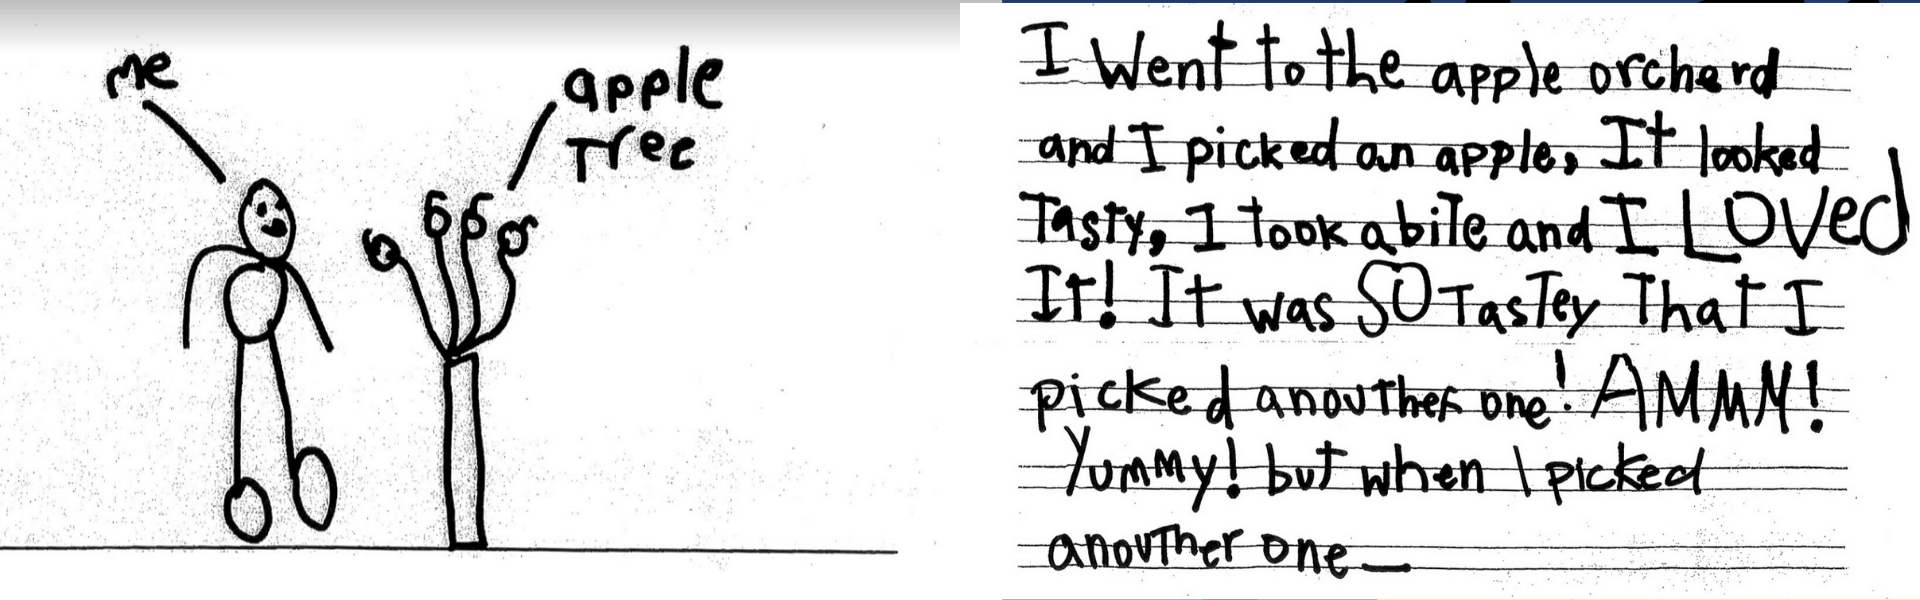 me
apple
Tree
I Went to the apple orchard
and I picked an apple, It looked
Tasty, I Took a biTe and I LOVed
It! It was SO TasTey ThaT I
picked anouTher one! AMMM!
Yummy! but when I picked
anouTher one—